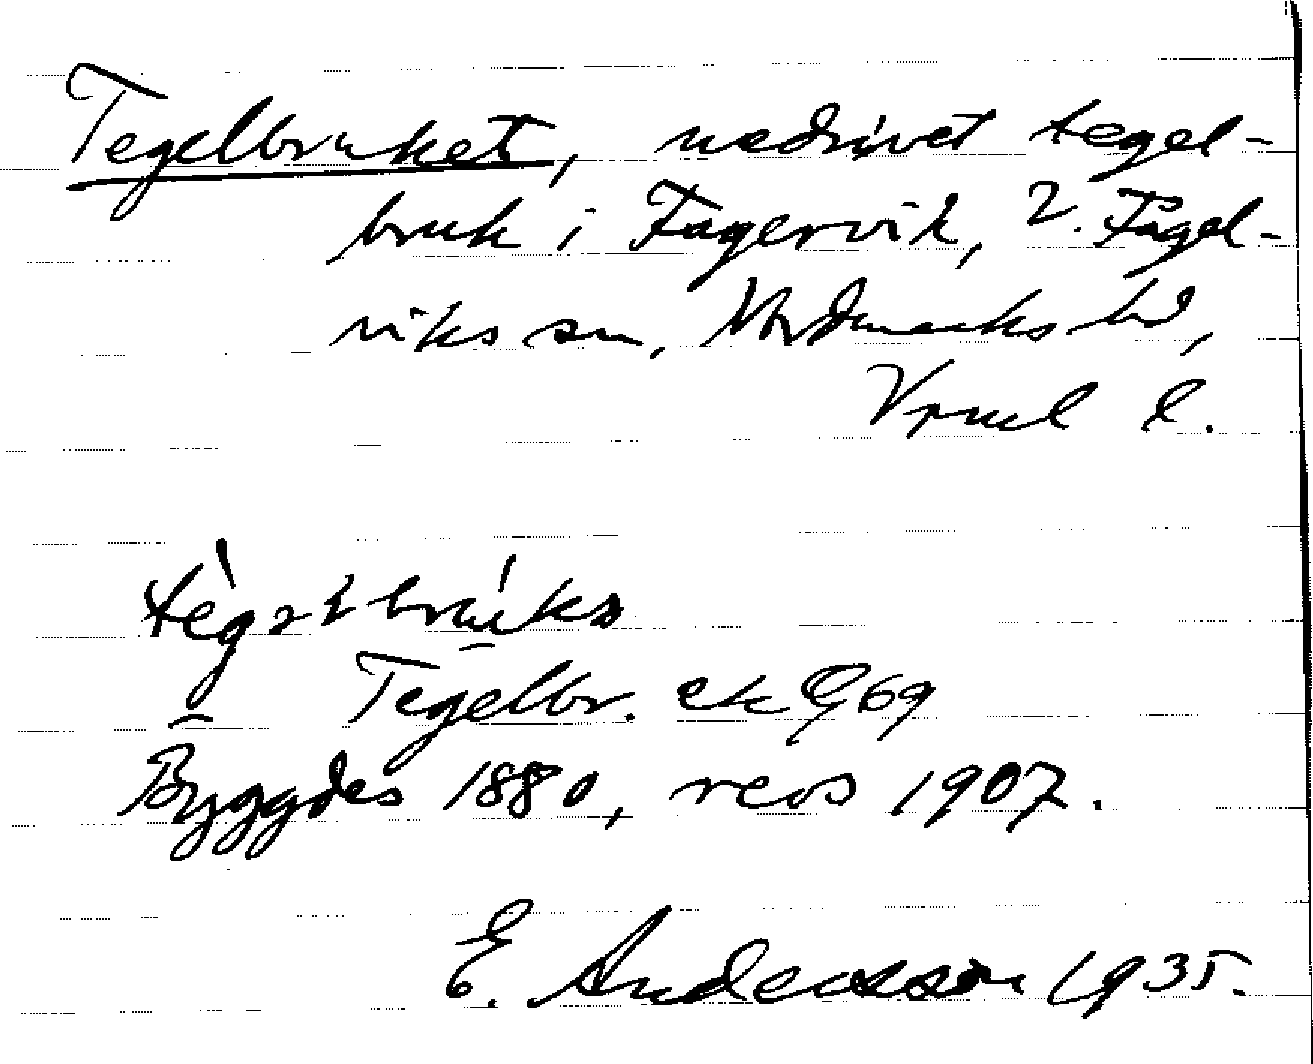 Tegelbruket, nedrivet tegel-
bruk i Fagervik, 2. Fågel-
viks sn, Nordmarks hd,
Vrml l.
tè̀gəlbrúkə
Tegelbr. ek Q69
Byggdes 1880, revs 1907.
E. Andersson 1935.